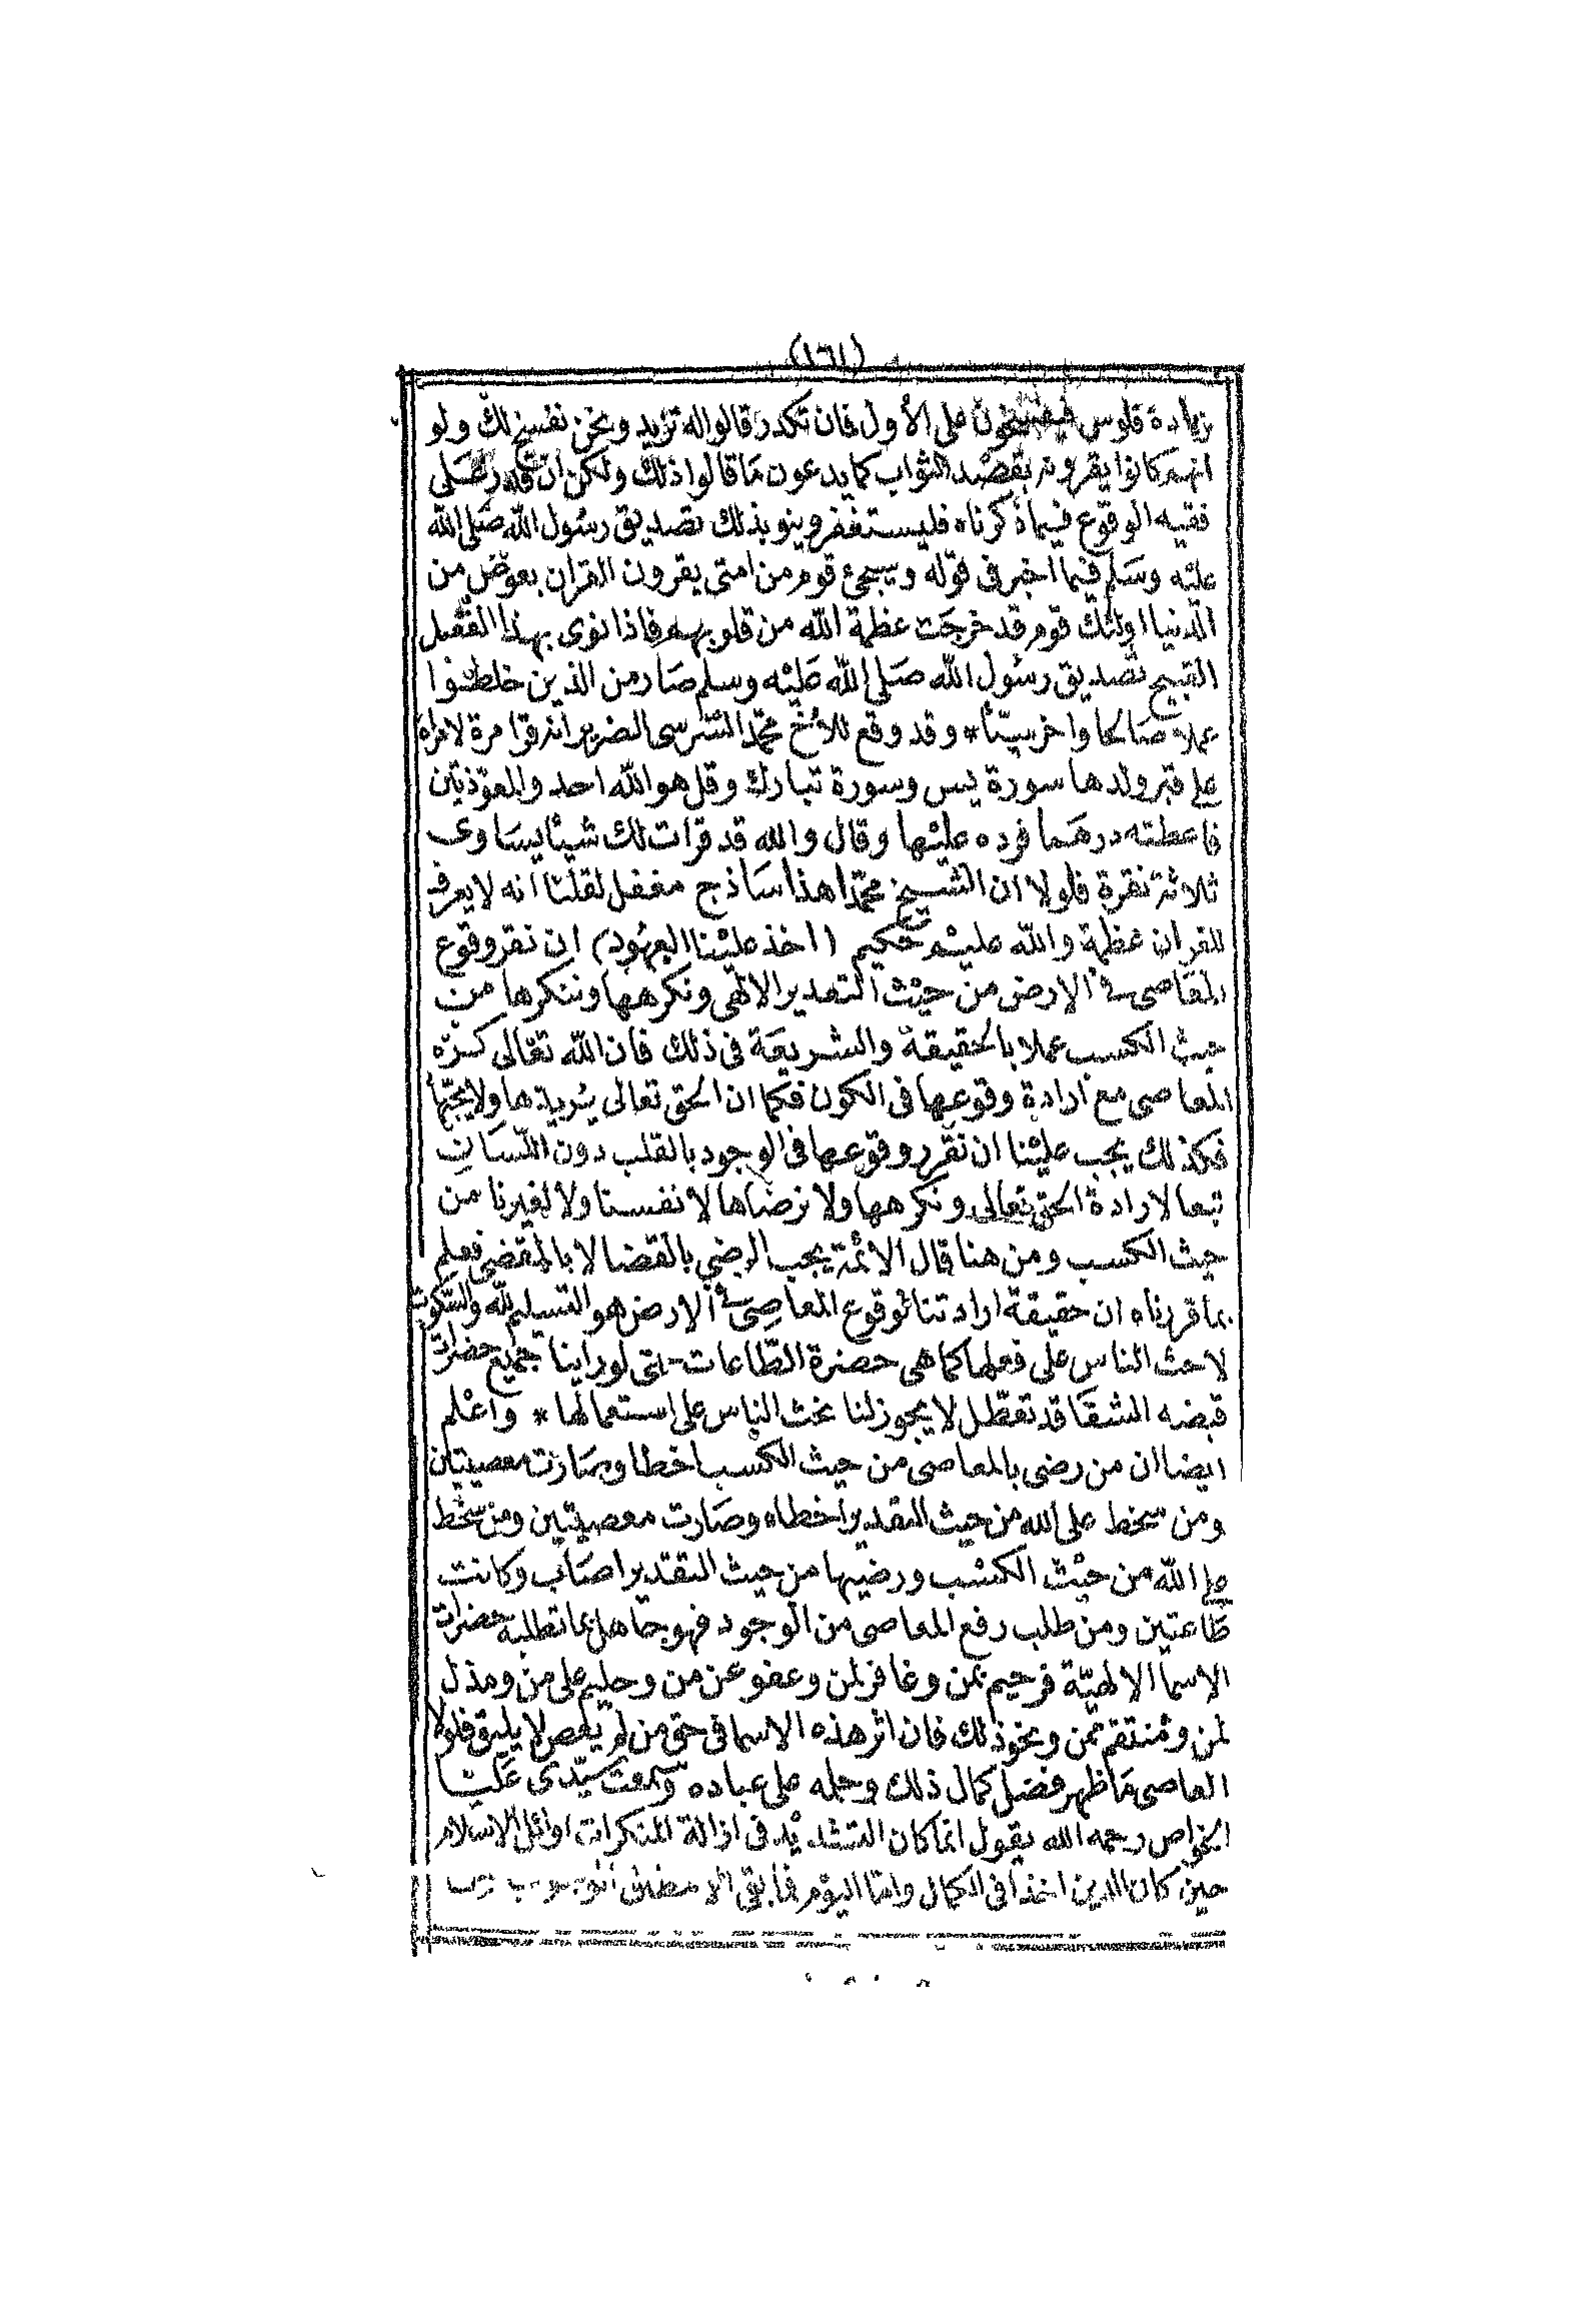 (١٦١)
زيادة فلوس فيفسخون على الأول فان تكدر قالوا له تزيد ونحن نفسخ لك ولو
انهم كانوا يقرونه بقصد الثواب كما يدعون ما قالوا ذلك ولكن ان قدر على
فقيه الوقوع فيما ذكرناه فليستغفر وينو بذلك تصديق رسول الله صلى الله
عليه وسلم فيما اخبر في قوله وسيجئ قوم من امتى يقرون القران بعوض من
الدنيا اولئك قوم قد خرجت عظمة الله من قلوبهم فاذا نوى بهذا الفعل
القبيح تصديق رسول الله صلى الله عليه وسلم صار من الذين خلطوا
عملا صالحا واخر سيئا * وقد وقع للأخ محمد الضرير انه قرا مرة لامراة
على قبر ولدها سورة يس وسورة تبارك وقل هو الله احد والمعوّذتين
فاعطته درهما فرده عليها وقال والله قد قرات لك شيئا يساوى
ثلاثة نقرة فلولا ان الشيخ محمدا هذا ساذج مغفل لقلنا انه لا يعرف
للقران عظمة والله عليم حكيم (اخذ علينا العهود) ان نقر وقوع
المعاصى في الارض من حيث التقدير الالهى ونكرهها وننكرها من
حيث الكسب عملا بالحقيقة والشريعة فى ذلك فان الله تعالى كره
المعاصى مع ارادة وقوعها فى الكون فكما ان الحق تعالى يريدها ولا يحبها
فكذلك يجب علينا ان نقرر وقوعها فى الوجود بالقلب دون اللسان
تبعا لارادة الحق تعالى ونكرهها ولا نرضاها لانفسنا ولا لغيرنا من
حيث الكسب ومن هنا قال الائمة يجب الرضى بالقضا لا بالمقضى فعلم
بما قررناه ان حقيقة ارادتنا لوقوع المعاصى في الارض هو التسليم لله والسكوت
لاحث الناس على فعلها كما هى حضرة الطاعات حتى لو راينا جميع حضرات
قبضه الشقا قد تعطل لا يجوز لنا نحث الناس على استعمالها * واعلم
ايضا ان من رضى بالمعاصى من حيث الكسب اخطا وصارت معصيتان
ومن سخط على الله من حيث التقدير اخطاه وصارت معصيتين ومن سخط
على الله من حيث الكسب ورضيها من حيث التقدير اصاب وكانت
طاعتين ومن طلب رفع المعاصى من الوجود فهو جاهل بما تطلبه حضرات
الاسما الالهية فرحيم بمن وغافر لمن وعفو عن من وحليم على من ومذل
لمن ومنتقم ممن ونحو ذلك فان اثر هذه الاسما فى حق من لم يعص لا يليق فلولا
العاصى ما ظهر فضل كمال ذلك وحلمه على عباده وسمعت سيدى عليا
الخواص رحمه الله يقول انما كان التشديد فى ازالة المنكرات اوائل الاسلام
حين كان الدين اخذا فى الكمال واما اليوم فما بقى الا